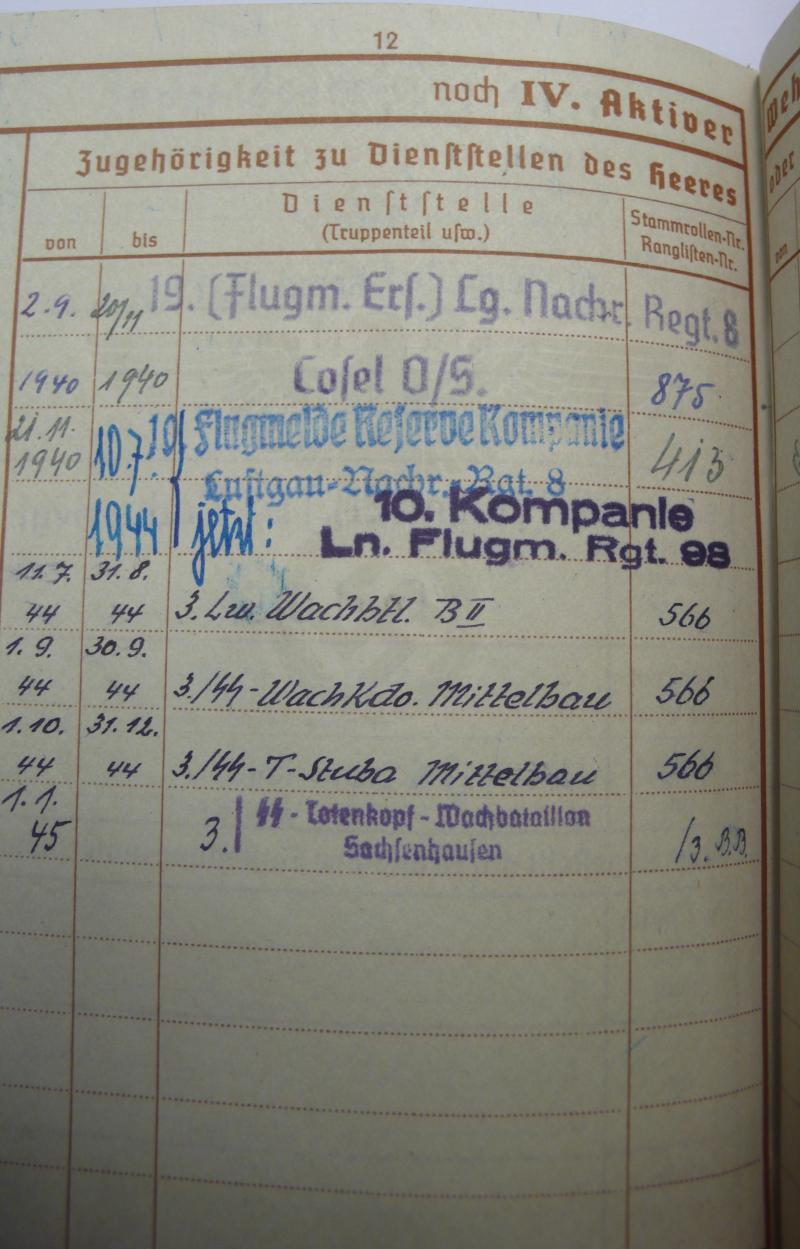 12
noch IV. Aktiver
Zugehörigkeit zu Dienststellen des Heeres
von bis Dienststelle (Truppenteil usw.) Stammrollen-Nr. Ranglisten-Nr.
2.9. 20/11 19. (Flugm. Ers.) Lg. Nachr. Regt. 8
1940 1940 Cosel O/S. 875
21.11. 1940 10.7. 1944 19 Flugmelde Reserve Kompanie 413
Luftgau-Nachr.-Rgt. 8
jetzt: 10. Kompanie
Ln. Flugm. Rgt. 98
11.7. 31.8.
44 44 3. Lw. Wachbtl. B II 566
1.9. 30.9.
44 44 3./SS-WachKdo. Mittelbau 566
1.10. 31.12.
44 44 3./SS-T-Stuba Mittelbau 566
1.1.
45 3. SS-Totenkopf-Wachbataillon
Sachsenhausen /3. B.B.
Weh
oder
von